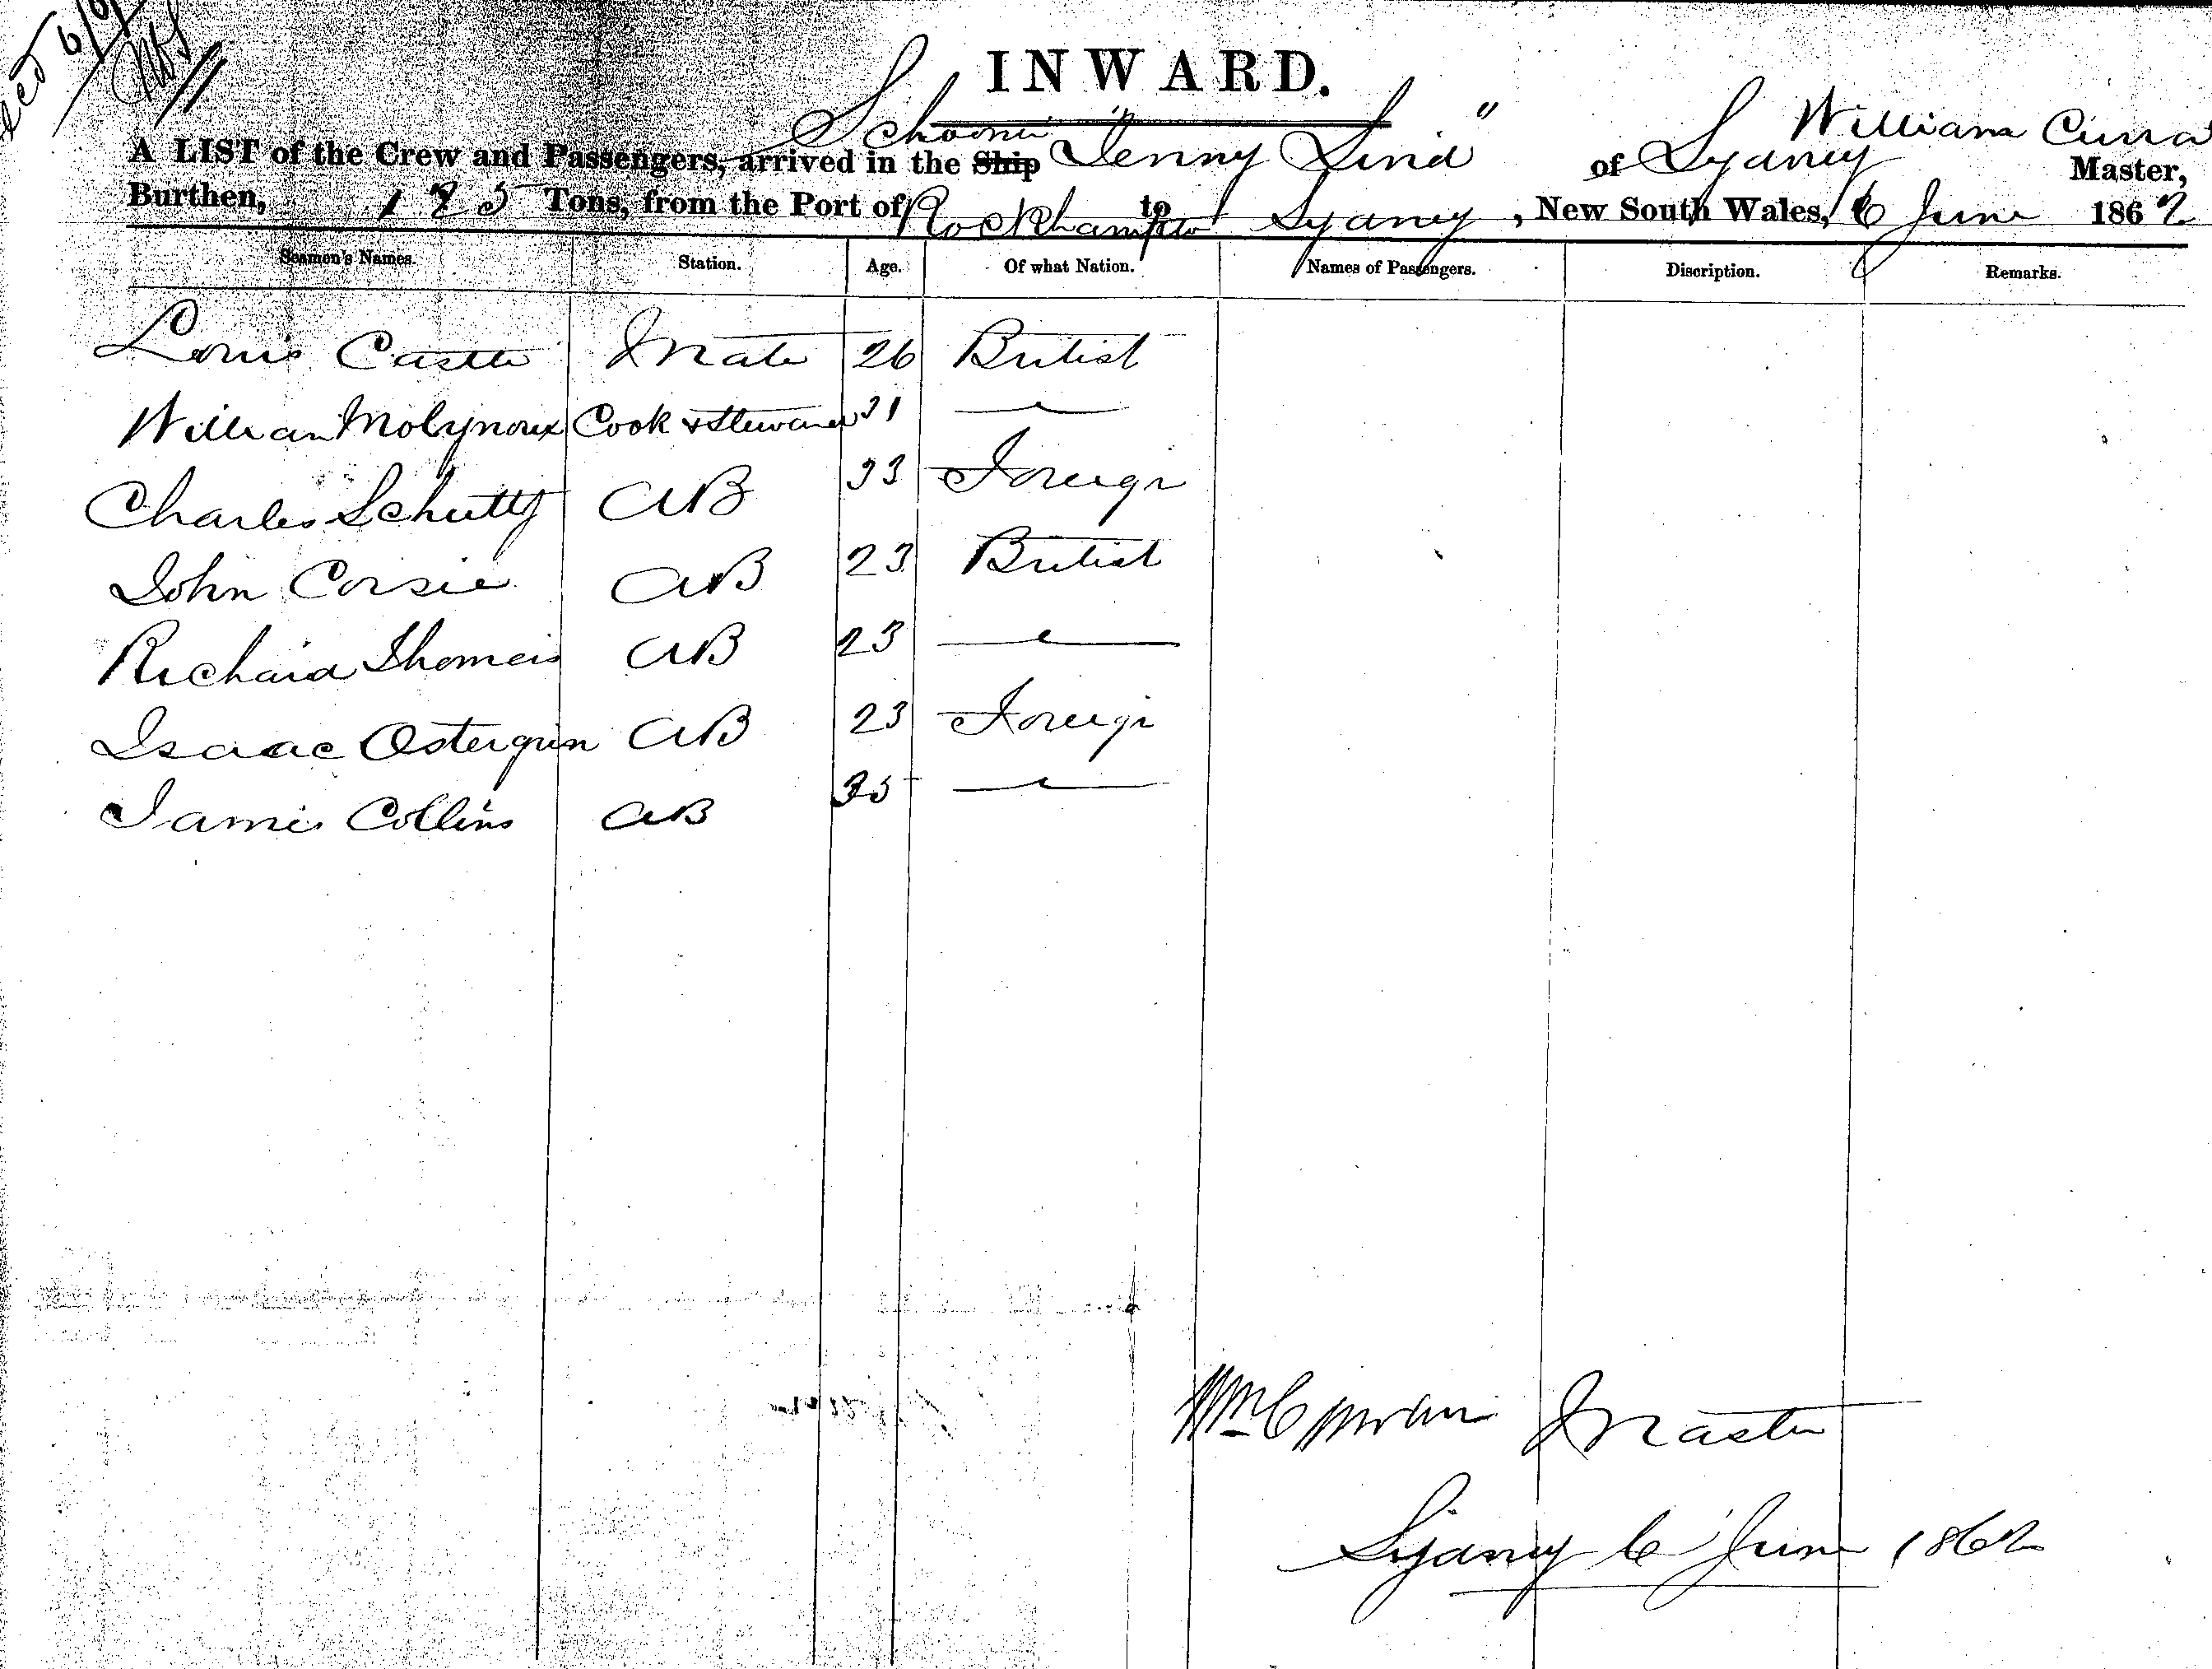 recd 6/6
INWARD.
A LIST of the Crew and Passengers, arrived in the Ship Schooner "Jenny Lind" of Sydney William Curra Master,
Burthen, 185 Tons, from the Port of Rockhampton to Sydney, New South Wales, 6 June 1862
Seamen's Names. Station. Age. Of what Nation. Names of Passengers. Discription. Remarks.
Louis Castle Mate 26 British
William Molynoux Cook & Steward 31 —
Charles Schutty AB 33 Foreign
John Corsie AB 23 British
Richard Thomas AB 23 —
Isaac Ostergrin AB 23 Foreign
James Collins AB 35 —
Wm Curran Master
Sydney 6 June 1862